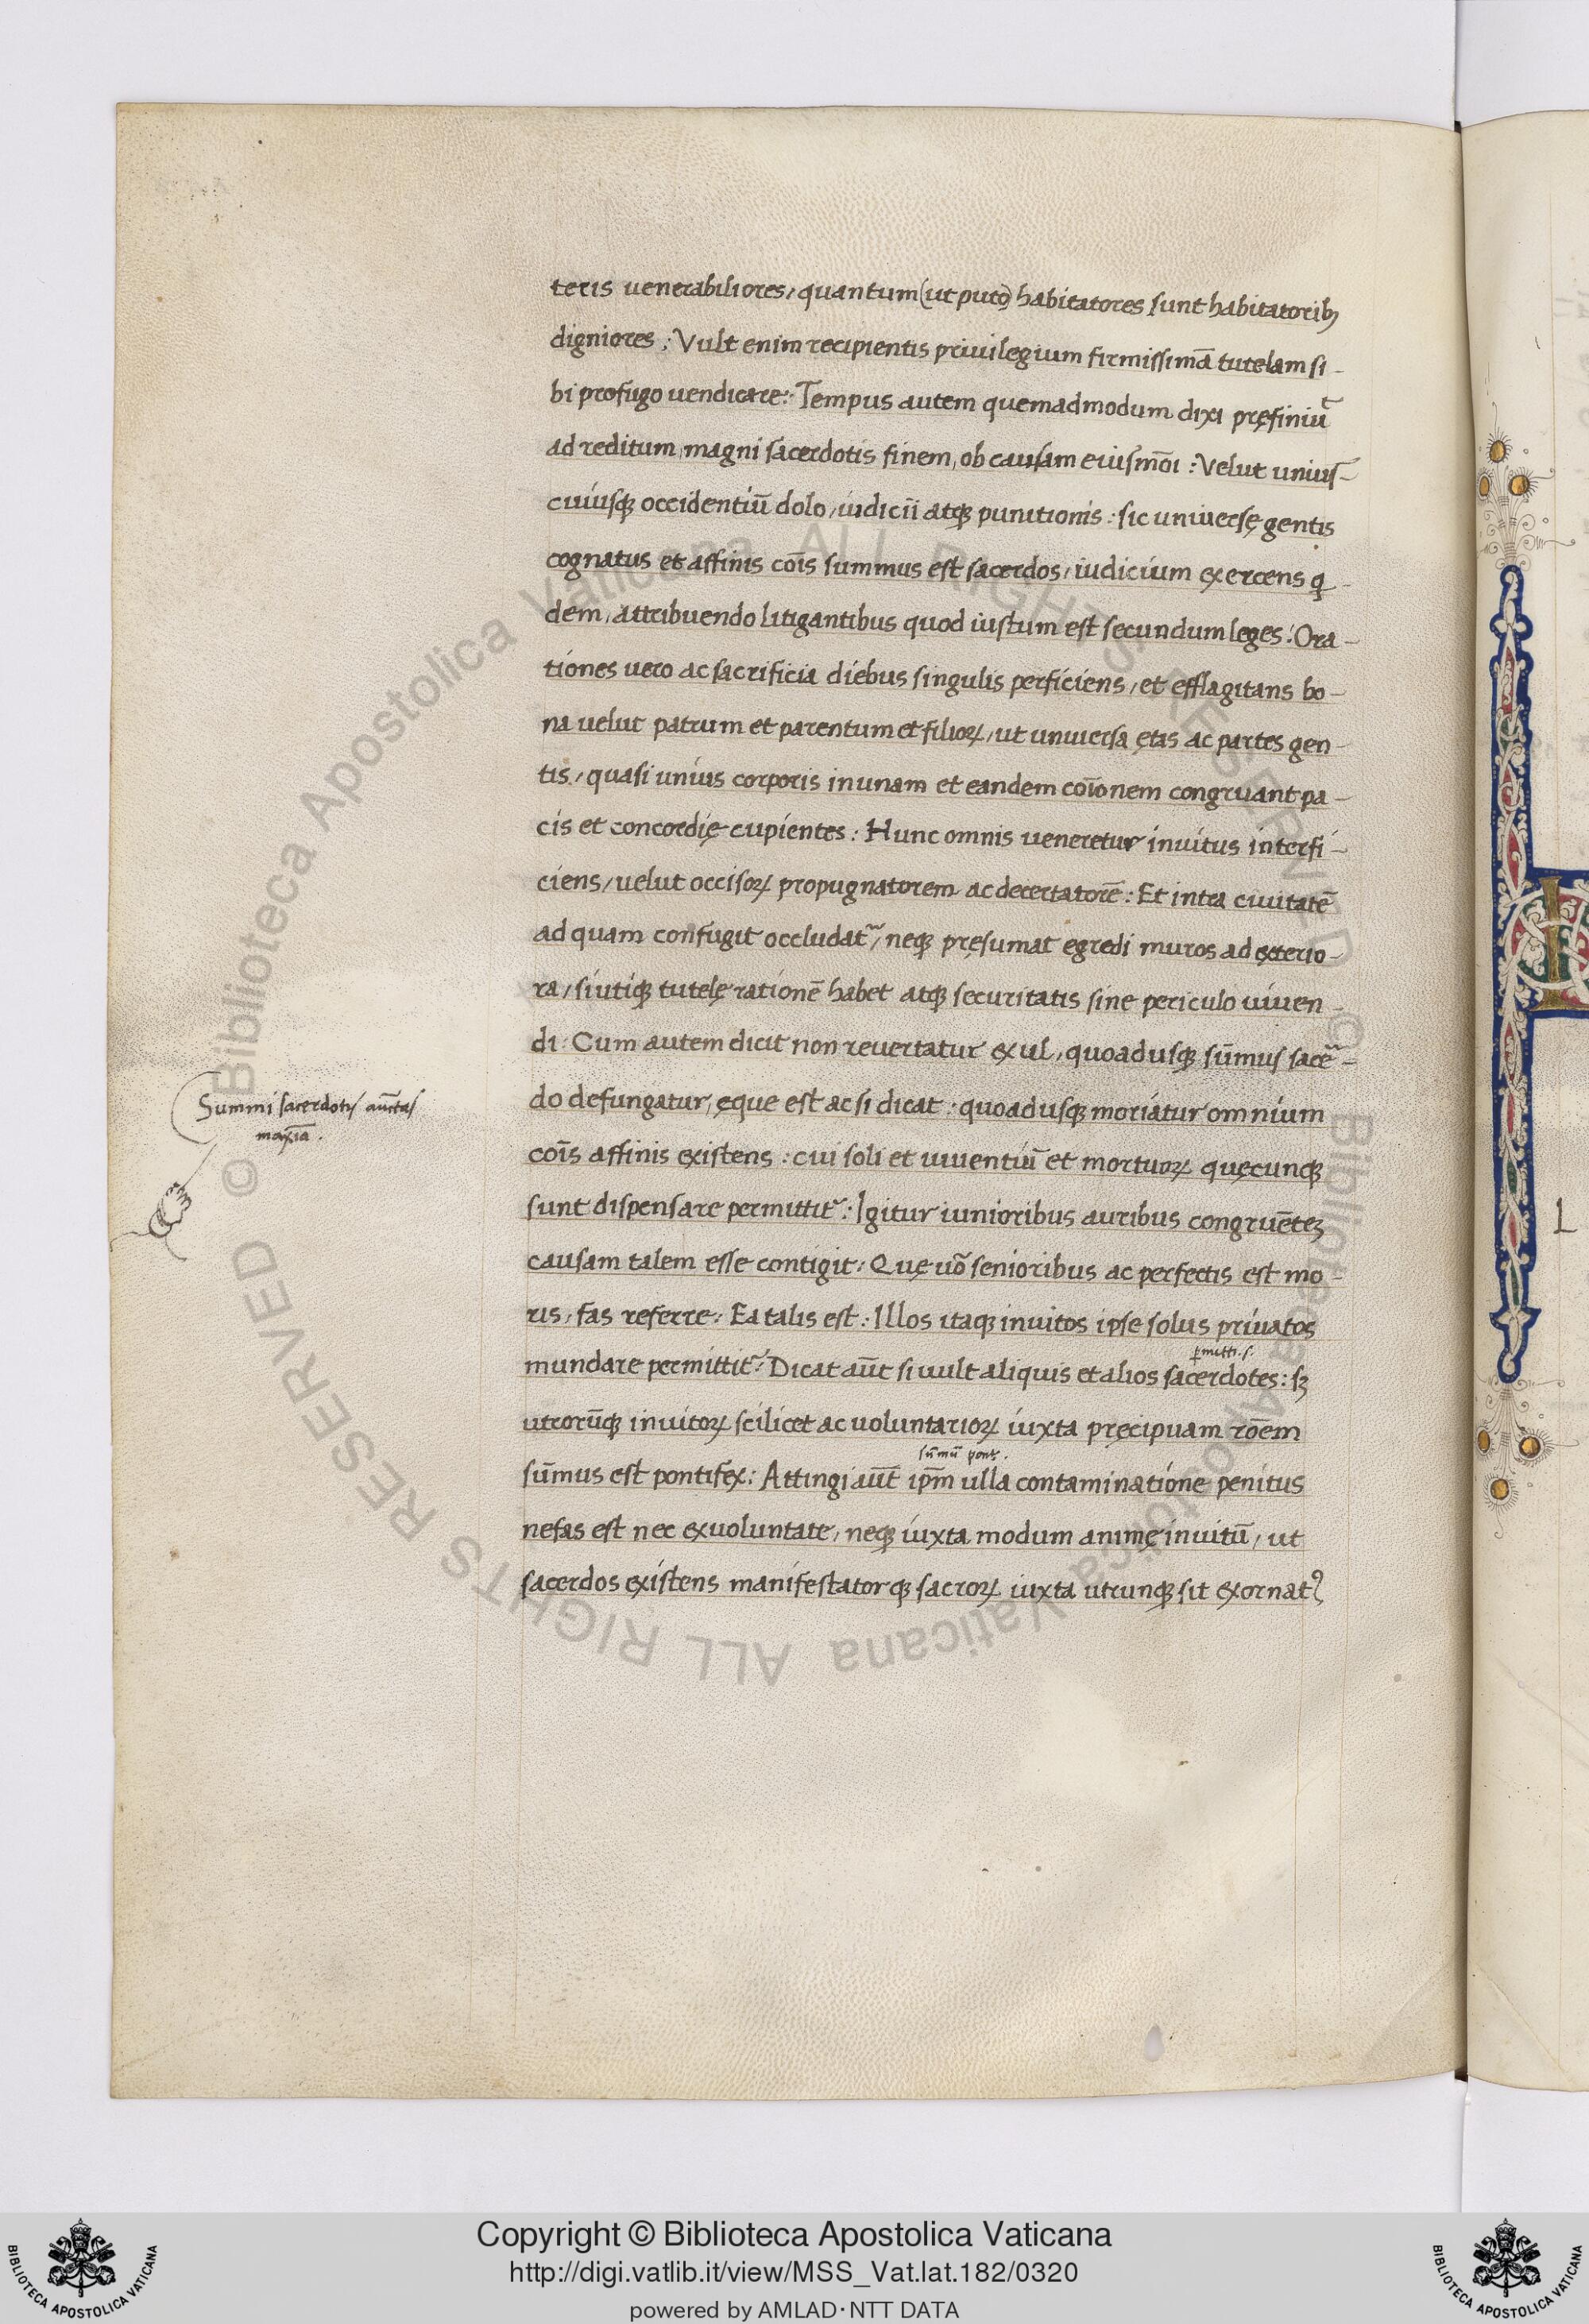 teris venerabiliores, quantum (ut puto) habitatores sunt habitatoribꝫ
digniores: Vult enim recipientis privilegium firmissimā tutelam si-
bi profugo vendicare: Tempus autem quemadmodum dixi pręfiniūt
ad reditum, magni sacerdotis finem, ob causam eiusmōi: Velut unius-
cuiusqꝫ occidentiū dolo, iudicii atqꝫ punitionis: sic universę gentis
cognatus et affinis cōis summus est sacerdos, iudicium exercens q̨
dem, attribuendo litigantibus quod iustum est secundum leges: Ora-
tiones vero ac sacrificia diebus singulis perficiens, et efflagitans bo-
na velut patrum et parentum et filioꝝ, ut universa ętas ac partes gen-
tis, quasi unius corporis in unam et eandem cōionem congruant pa-
cis et concordię cupientes: Hunc omnis veneretur invitus interfi-
ciens, velut occisoꝝ propugnatorem ac decertatorē: Et intra civitatē
ad quam confugit occludat᷑, neqꝫ pręsumat egredi muros ad exterio-
ra, si utiqꝫ tutelę rationē habet atqꝫ securitatis sine periculo viven-
di: Cum autem dicit non revertatur exul, quoadusqꝫ sūmus sacer-
do defungatur, ęque est ac si dicat: quoadusqꝫ moriatur omnium
cōis affinis existens: cui soli et viventiū et mortuoꝝ quęcunqꝫ
sunt dispensare permittit᷑: Igitur iunioribus auribus congruēteꝫ
causam talem esse contigit: Quę vō senioribus ac perfectis est mo-
ris, fas referre: Ea talis est: Illos itaqꝫ invitos ipse solus privatos
ꝑmitti.s.
mundare permittit᷑: Dicat aūt si vult aliquis et alios sacerdotes: sꝫ
utrorūqꝫ invitoꝝ scilicet ac voluntarioꝝ iuxta pręcipuam rōem
sūmū pont.
sūmus est pontifex: Attingi aūt ip̄m ulla contaminatione penitus
nefas est nec ex voluntate, neqꝫ iuxta modum animę invitū, ut
sacerdos existens manifestatorqꝫ sacroꝝ iuxta utrunqꝫ sit exornatꝰ
Summi sacerdotis auctās
maxīa.
L
© Biblioteca Apostolica Vaticana ALL RIGHTS RESERVED © Biblioteca Apostolica Vaticana ALL RIGHTS RESERVED
Copyright © Biblioteca Apostolica Vaticana
http://digi.vatlib.it/view/MSS_Vat.lat.182/0320
powered by AMLAD·NTT DATA
BIBLIOTECA APOSTOLICA VATICANA
BIBLIOTECA APOSTOLICA VATICANA